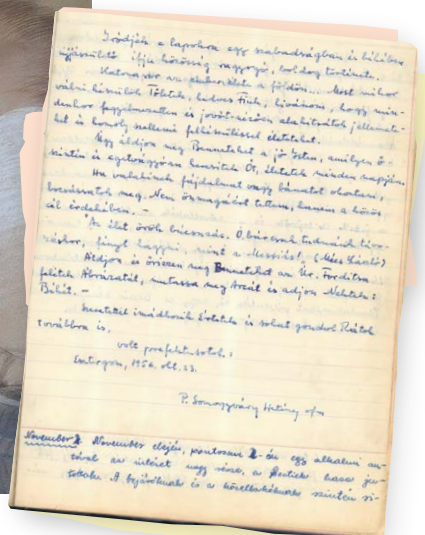 Íródjék e lapokon egy szabadságban és békében
újjászülető ifjú közösség ragyogó, boldog története.
Hatnapos az emberélet a földön... Most mikor
válni készülök Tőletek, kedves Fiúk, kívánom, hogy min-
denkor fegyelmezetten és jövőt-nézően alakítsátok jellemete-
ket és komoly szellemi felkészüléssel életeteket.
Úgy áldjon meg Benneteket a jó Isten, amilyen ő-
szintén és egetvágyóan keresitek Őt, életetek minden napján.
Ha valakinek fájdalmat vagy bánatot okoztam,
bocsássatok meg. Nem önmagáért tettem, hanem a közös
cél érdekében. -
"Az élet örök búcsúzás. Ó, bár csak tudnánk távo-
záskor, fényt hagyni, mint a Messiás! (Mécs László)
Áldjon és őrizzen meg Benneteket az Úr. Fordítsa
felétek Ábrázatát, mutassa meg Arcát és adjon Nektek:
Békét. -
Szeretettel imádkozik Értetek és sokat gondol Rátok
továbbra is.
volt prefektusotok:
Esztergom, 1956. okt. 23.
P. Somogyváry ofm
November November elején, pontosan 2-án egy alkalmi au-
tóval az intézet nagy része, a Pestiek haza ju-
tottak. A bejáróknak és a közellakóknak szintén si-